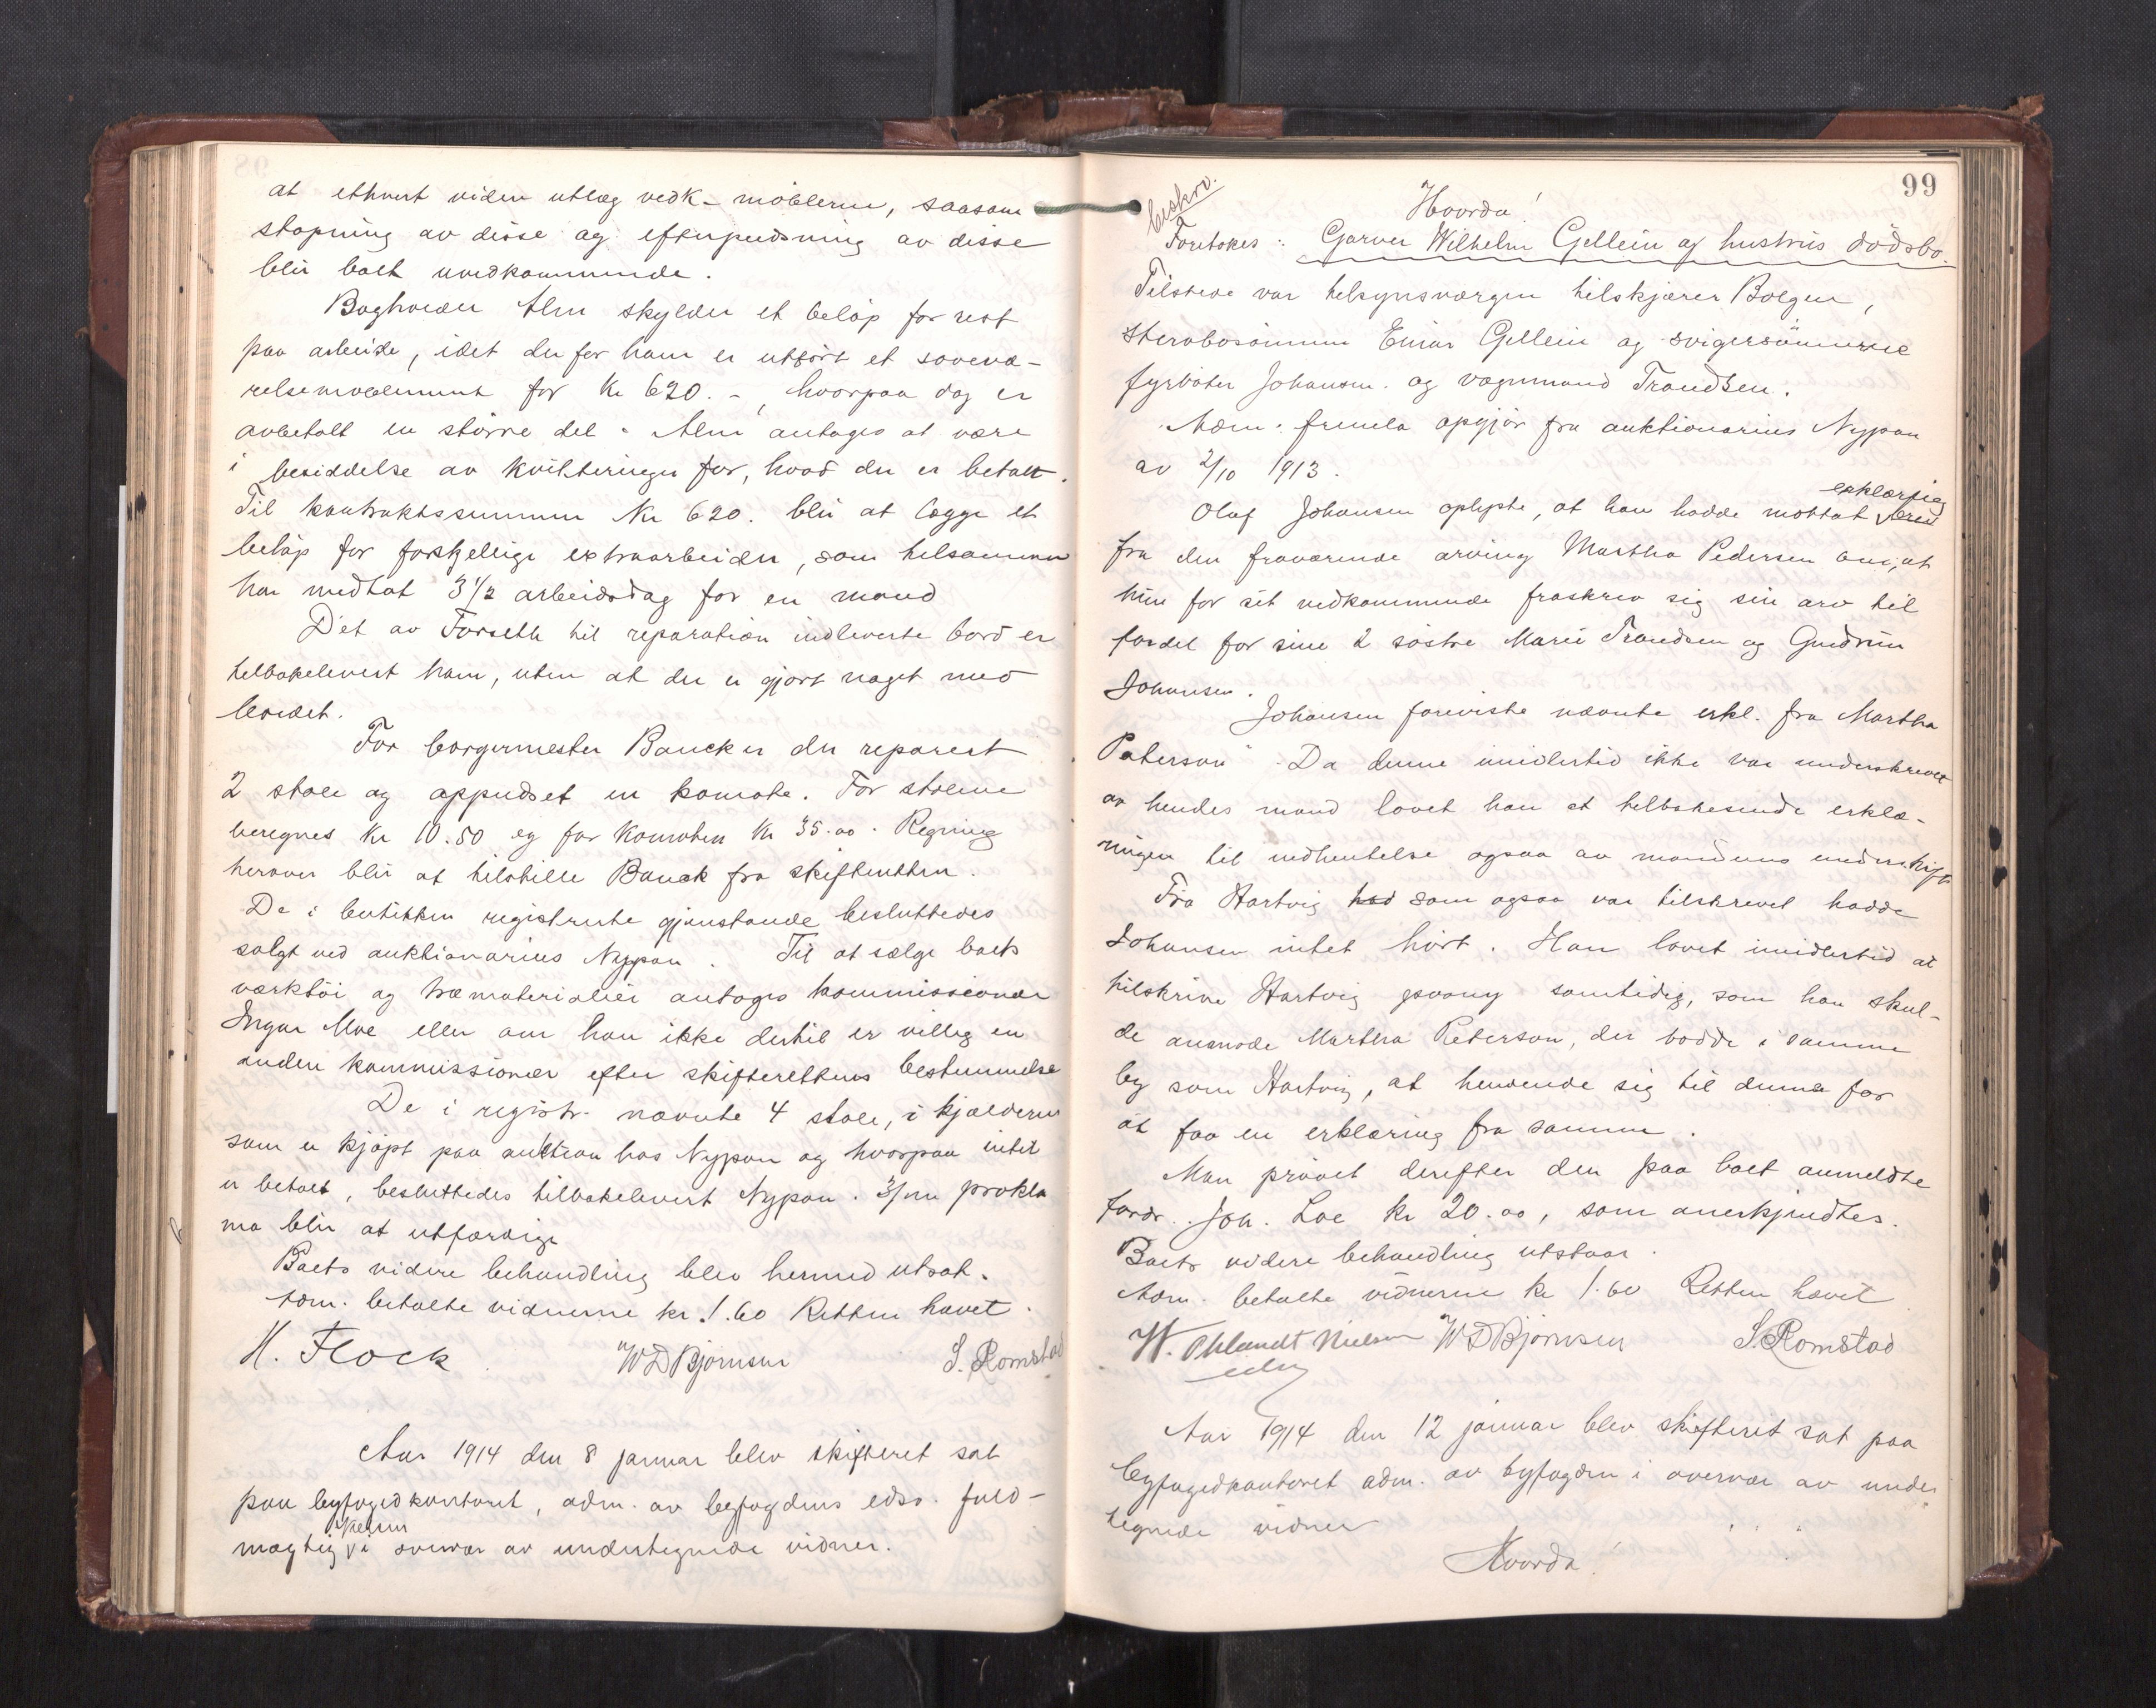 at ethvert videre utlæg vedk. möblerne, saasom
stopning av disse og efterpudsning av disse
blir boet uvedkommende.
Boghandler Alm skylder et beløp for rest
paa arbeide, idet der for ham er utført et sovevæ-
relsesmøblement for kr 620.-, hvorpaa dog er
avbetalt en større del. Alm antages at være
i besiddelse av kvitteringer for, hvad der er betalt.
Til kontraktssummen kr 620. blir at lægge et
beløp for forskjellige extraarbeider, som tilsammen
har medtat 3 1/2 arbeidsdag for en mand
Det av Forseth til reparation indleverte bord er
tilbakelevert ham, uten at der er gjort noget med
bordet.
For borgermester Bauck er der reparert
2 stole og oppudset en komode. For stolene
beregnes kr 10.50 og for komoden kr 35.00. Regning
herover blir at tilstille Bauck fra skifteretten.
De i butikken registrerte gjenstande besluttedes
solgt ved auktionarius Nypan. Til at sælge boets
værktøi og træmaterialier antoges kommissionær
Ingar Moe eller om han ikke dertil er villig en
anden kommissionær efter skifterettens bestemmelse
De i registr. nævnte 4 stole, i kjælderen
som er kjøpt paa auktion hos Nypan og hvorpaa intet
er betalt, besluttedes tilbakelevert Nypan. 3/m prokla
ma blir at utfærdige
Boets videre behandling blev hermed utsat.
Adm. betalte vidnerne kr. 1.60 Retten hævet.
H. Flock W D Bjørnsen S. Romstad
Aar 1914 den 8 januar blev skifteret sat
paa byfogedkontoret, adm. av byfogdens edsv. fuld-
mægtig i overvær av undertegnede vidner.
99
beskrv.
Hvorda!
Foretokes: Garver Wilhelm Gellein og hustrus dødsbo.
Tilstede var tilsynsværgen tilskjærer Bolgen,
stervbosönnen Einar Gellein og svigersönnerne
fyrböter Johansen og vognmand Trondsen.
Adm. fremla opgjør fra auktionarius Nypan
av 2/10 1913.
erklæring
Olaf Johansen oplyste, at han hadde mottat brev
fra den fraværende arving Martha Pedersen om, at
hun for sit vedkommende fraskrev sig sin arv til
fordel for sine 2 søstre Marie Trondsen og Gudrun
Johansen.
Johansen foreviste nævnte erkl. fra Martha
Peterson. Da denne imidlertid ikke var underskrevet
av hendes mand lovet han at tilbakesende erklæ-
ringen til indhentelse ogsaa av mandens underskrift
Fra Hartvig had som ogsaa var tilskrevet hadde
Johansen intet hört. Han lovet imidlertid at
tilskrive Hartvig paany samtidig, som han skul-
de anmode Martha Peterson, der bodde i samme
by som Hartvig, at henvende sig til denne for
at faa en erklæring fra samme.
Man prøvet derefter den paa boet anmeldte
fordr. Joh. Loe kr 20.00, som anerkjendtes.
Boets videre behandling utstaar.
Adm. betalte vidnerne kr 1.60 Retten hævet
H. Ohlandt Nielsen W D Bjørnsen S. Romstad
edsv
Aar 1914 den 12 januar blev skifteret sat paa
byfogedkontoret adm. av byfogden i overvær av under
tegnede vidner
Hvorda!